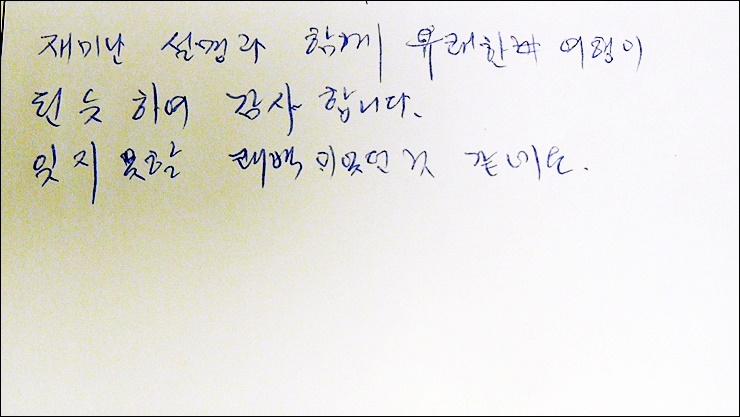 재미난 설명과 함께 유쾌한 여행이
된 듯 하여 감사 합니다.
잊지 못할 태백 이었던 것 같네요.